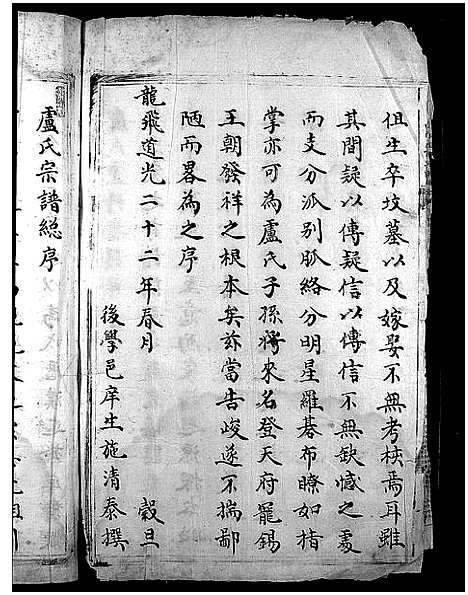 但生卒坟墓以及嫁娶不無考核焉耳雖
其間疑以傳疑信以傳信不無缺憾之處
而支分派別脈絡分明星羅碁布瞭如指
掌亦可為盧氏子孫將來名登天府寵錫
王朝發祥之根本矣茲當告竣遂不揣鄙
陋而畧為之序
龍飛道光二十二年春月 穀旦
後學邑庠生施清泰撰
盧氏宗譜總序